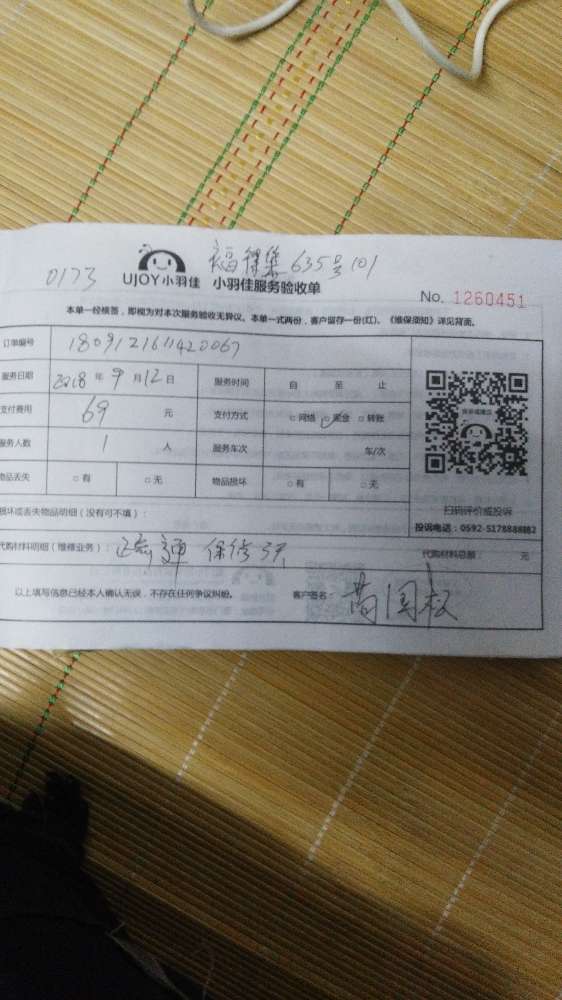 0173 UJOY小羽佳 635号101
小羽佳服务验收单
No. 1260451
本单一经核签，即视为对本次服务验收无异议。本单一式两份，客户留存一份(红)。《维保须知》详见背面。
订单编号
服务日期 2018 年 9 月 12 日 服务时间 自 至 止
支付费用 69 元 支付方式 □网络 □现金 □转账
服务人数 1 人 服务车次 车/次
物品丢失 □有 □无 物品损坏 □有 □无
扫码评价或投诉
投诉电话：0592-5178888转2
损坏或丢失物品明细（没有可不填）：
代购材料明细（维修业务）： 保修 代购材料总额： 元
以上填写信息已经本人确认无误，不存在任何争议纠纷。 客户签名：